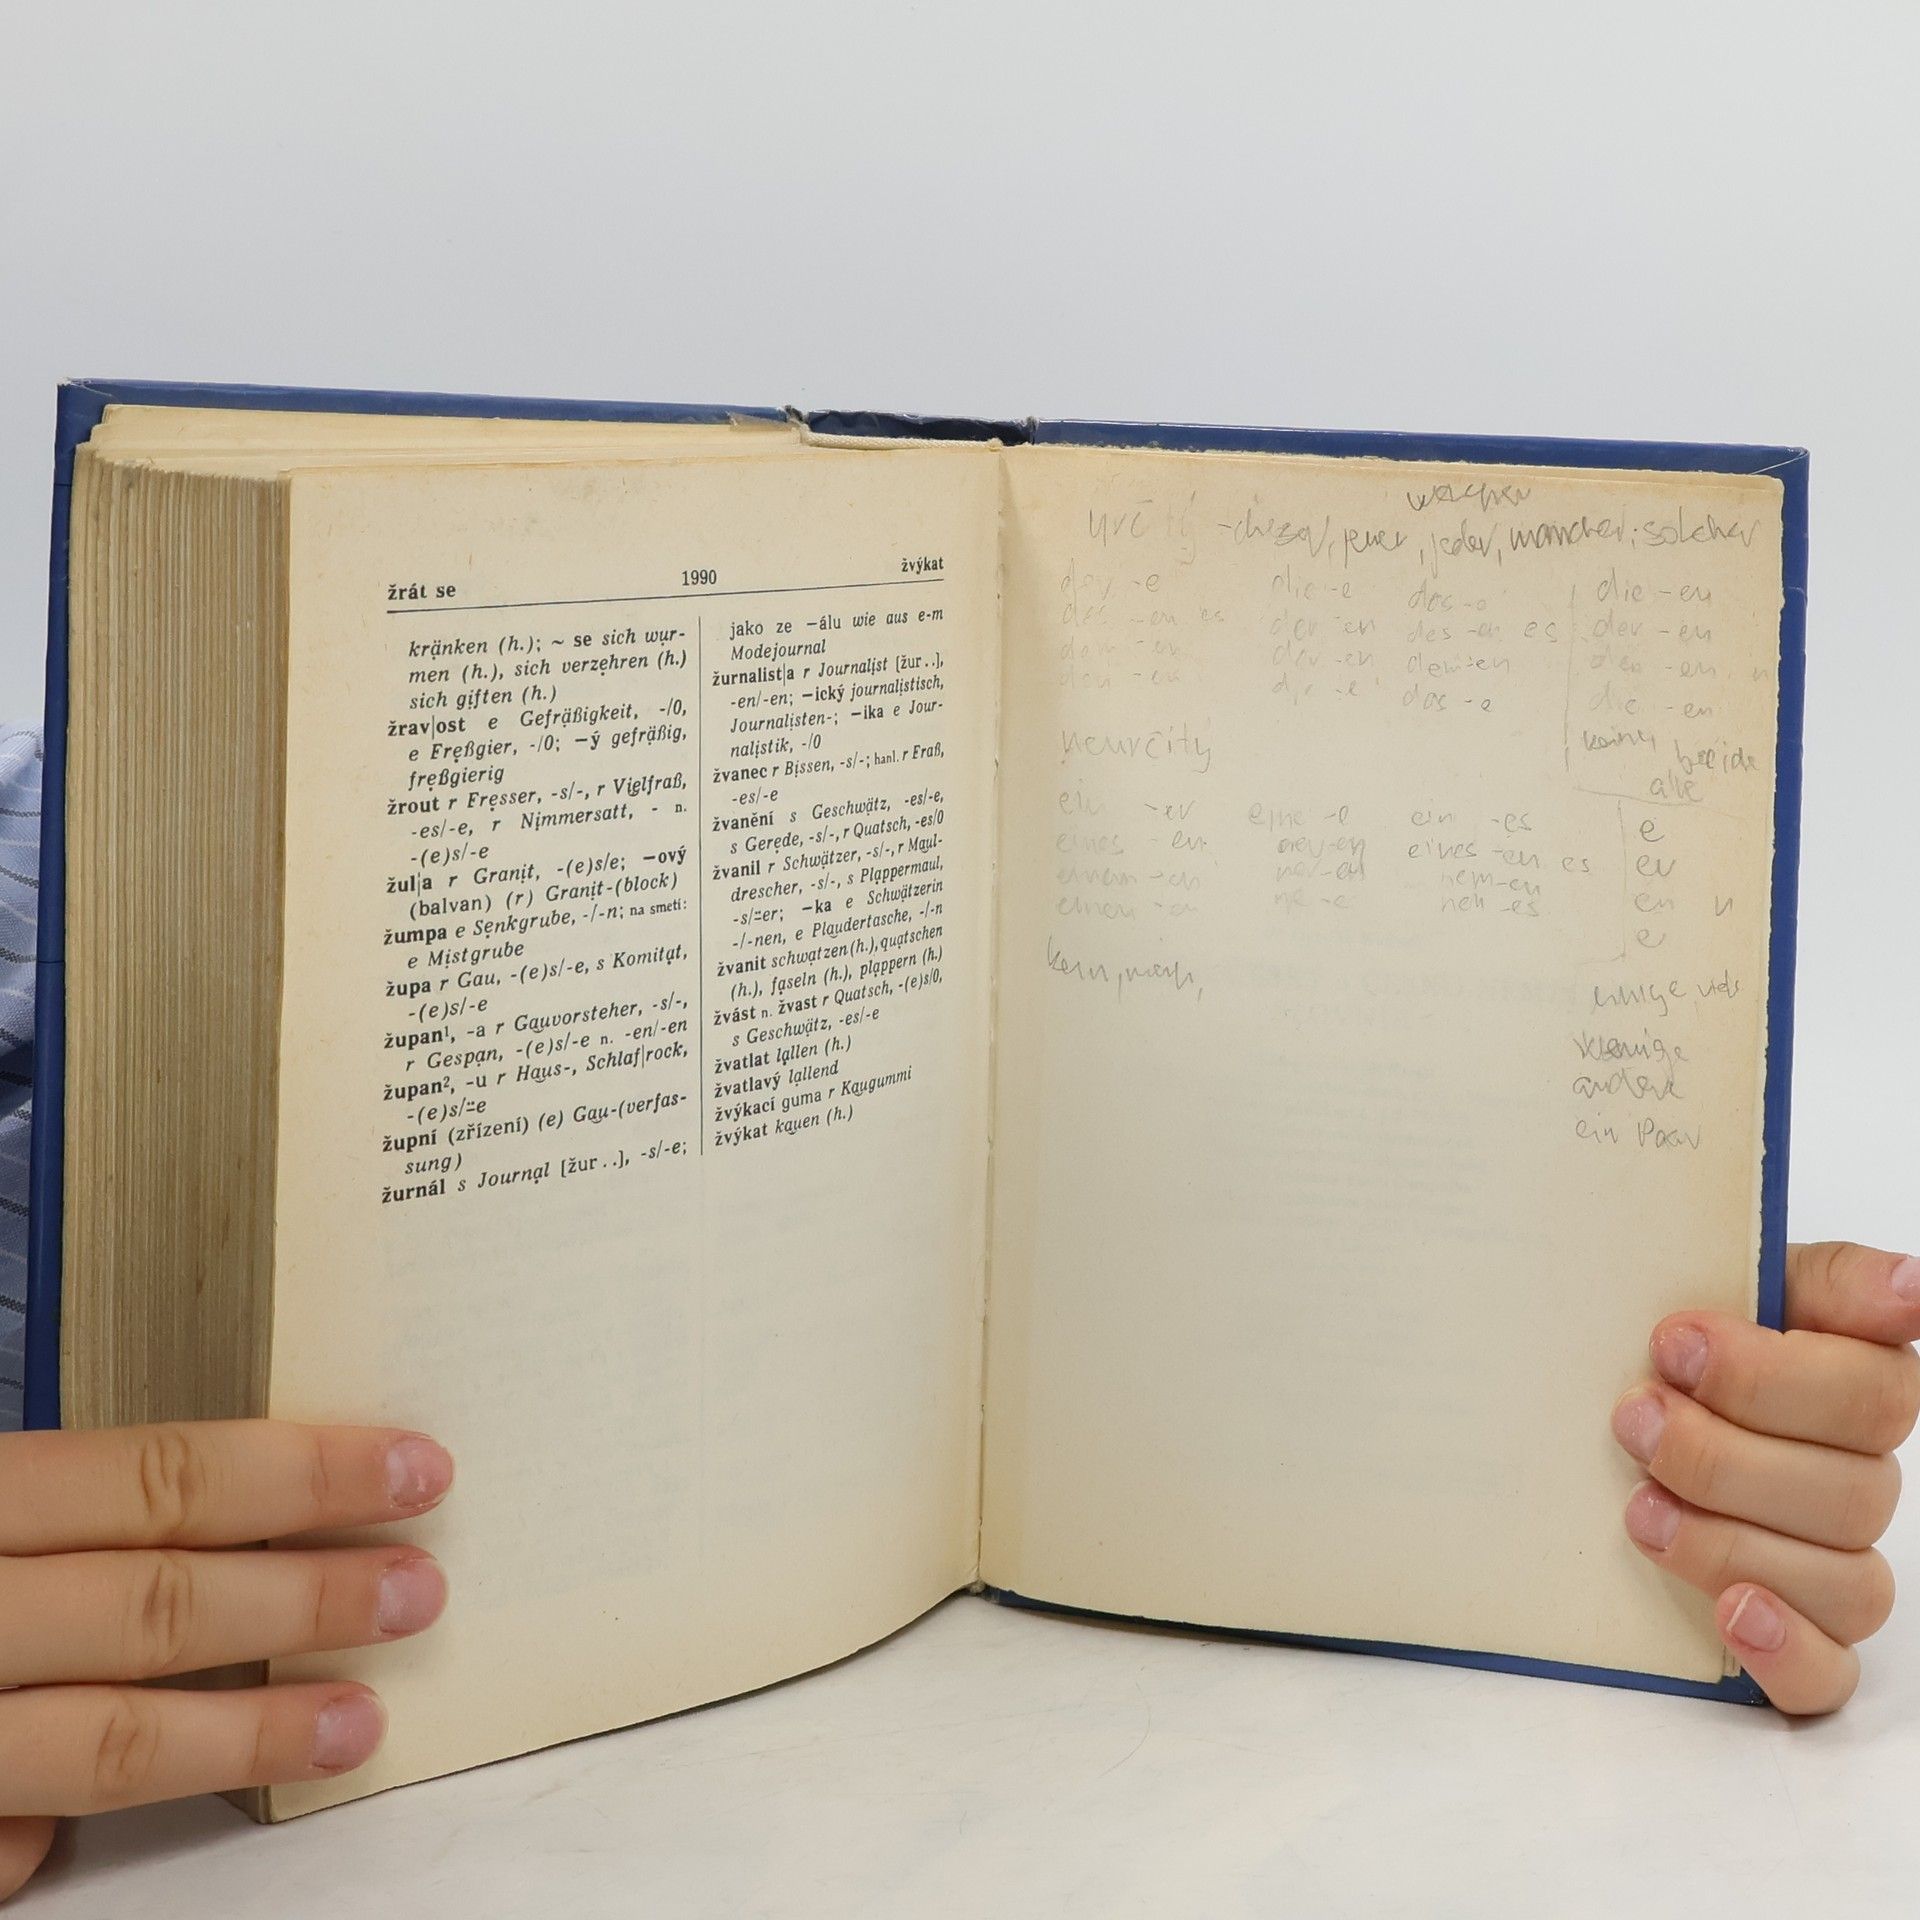 žrát se
1990
žvýkat
kränken (h.); ~ se sich wur-
men (h.), sich verzehren (h.)
sich giften (h.)
žrav|ost e Gefräßigkeit, -/0,
e Freßgier, -/0; —ý gefräßig,
freßgierig
žrout r Fresser, -s/-, r Vielfraß,
-es/-e, r Nimmersatt, - n.
-(e)s/-e
žul|a r Granit, -(e)s/e; —ový
(balvan) (r) Granit-(block)
žumpa e Senkgrube, -/-n; na smetí:
e Mistgrube
župa r Gau, -(e)s/-e, s Komitat,
-(e)s/-e
župan¹, -a r Gauvorsteher, -s/-,
r Gespan, -(e)s/-e n. -en/-en
župan², -u r Haus-, Schlaf|rock,
-(e)s/⸚e
župní (zřízení) (e) Gau-(verfas-
sung)
žurnál s Journal [žur..], -s/-e;
jako ze —álu wie aus e-m
Modejournal
žurnalist|a r Journalist [žur..],
-en/-en; —ický journalistisch,
Journalisten-; —ika e Jour-
nalistik, -/0
žvanec r Bissen, -s/-; hanl. r Fraß,
-es/-e
žvanění s Geschwätz, -es/-e,
s Gerede, -s/-, r Quatsch, -es/0
žvanil r Schwätzer, -s/-, r Maul-
drescher, -s/-, s Plappermaul,
-s/⸚er; —ka e Schwätzerin
-/-nen, e Plaudertasche, -/-n
žvanit schwatzen (h.), quatschen
(h.), faseln (h.), plappern (h.)
žvást n. žvast r Quatsch, -(e)s/0,
s Geschwätz, -es/-e
žvatlat lallen (h.)
žvatlavý lallend
žvýkací guma r Kaugummi
žvýkat kauen (h.)
welcher
určitý - dieser, jener, jeder, mancher, solcher
der -e die -e das -e die -en
des -en es der -en des -en es der -en
dem -en der -en dem -en den -en n
den -en die -e das -e die -en
keine beide
neurčitý
alle
ein -er eine -e ein -es e
eines -en ner -en eines -en es er
einem -en ner -en nem -en en n
einen -en ne -e nen -es e
kein, mein,
einige
wenige
andere
ein Paar